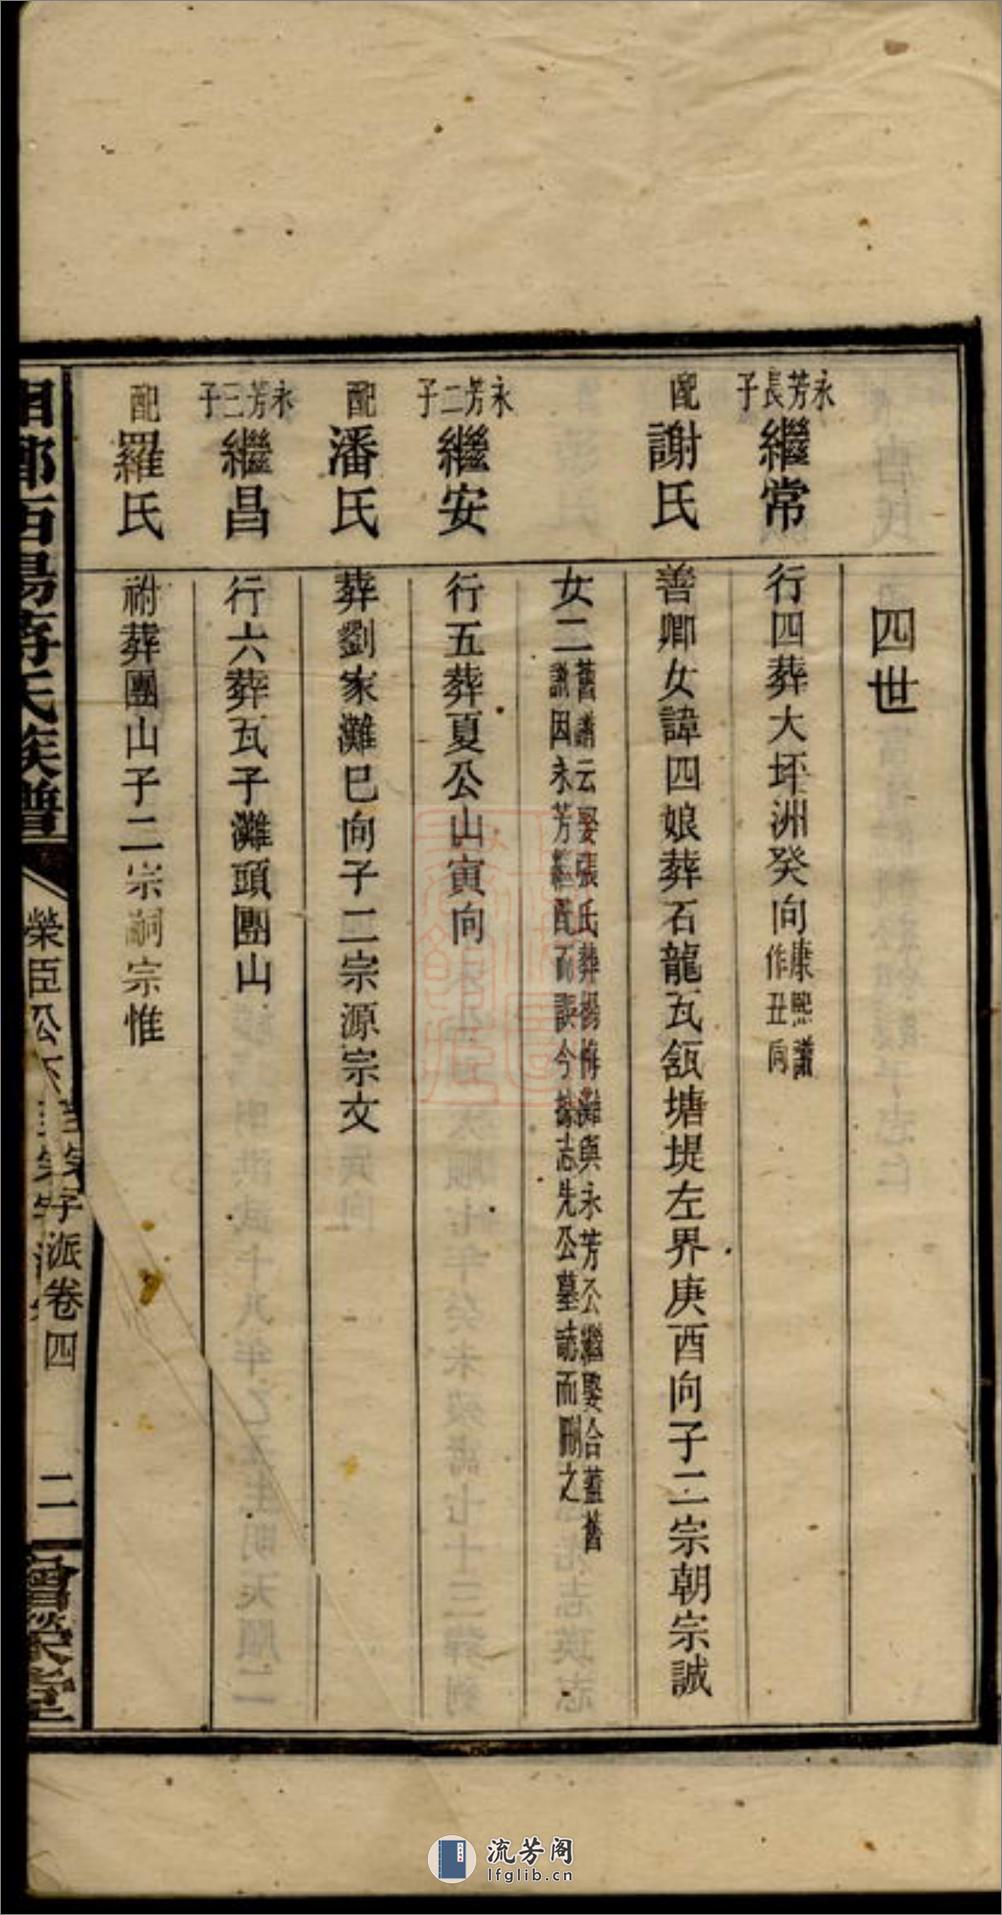 四世
永芳長子
繼常
行四葬大坏洲癸向康熙譜作丑向
配謝氏
善卿女諱四娘葬石龍瓦瓴塘堤左界庚酉向子二宗朝宗誠
女二舊譜云娶張氏葬楊梅灘與永芳公繼娶合蓋舊
譜因永芳繼配而誤今據志先公墓誌而刪之
永芳二子
繼安
行五葬夏公山寅向
配潘氏
葬劉家灘巳向子二宗源宗文
永芳三子
繼昌
行六葬瓦子灘頭團山
配羅氏
祔葬團山子二宗嗣宗惟
氏族譜
榮臣公
字派卷四
二
流芳阁
lfglib.cn